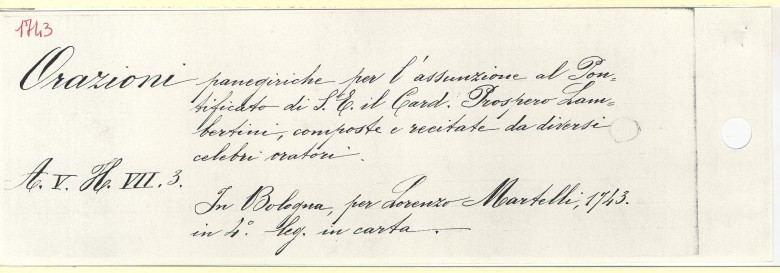 1743
Orazioni panegiriche per l'assunzione al Pon-
tificato di S. E. il Card. Prospero Lam-
bertini, composte e recitate da diversi
celebri oratori.
A. V. H. VII. 3.
In Bologna, per Lorenzo Martelli, 1743.
in 4.° leg. in carta.